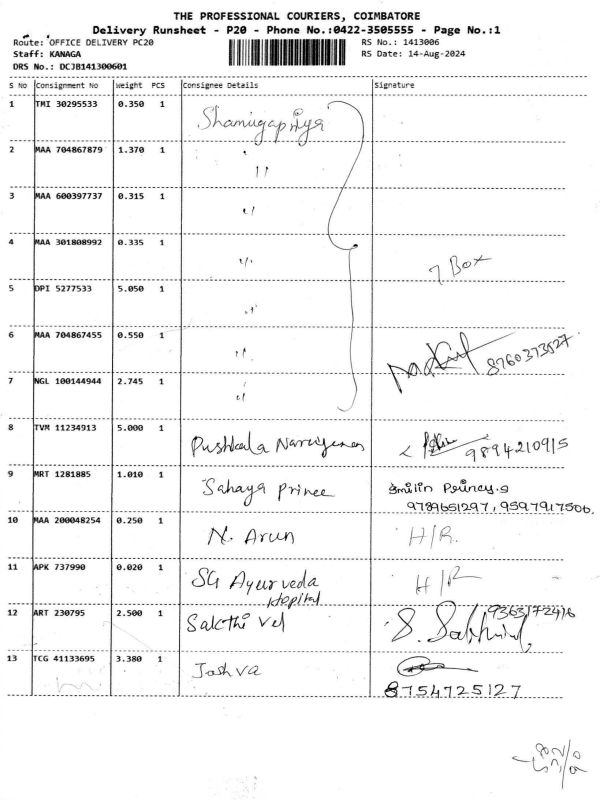 THE PROFESSIONAL COURIERS, COIMBATORE
Delivery Runsheet - P20 - Phone No.:0422-3505555 - Page No.:1
Route: OFFICE DELIVERY PC20 RS No.: 1413006
Staff: KANAGA RS Date: 14-Aug-2024
DRS No.: DCJB141300601
S No Consignment No Weight PCS Consignee Details Signature
1 TMI 30295533 0.350 1 Shamugapriya
2 MAA 704867879 1.370 1 "
3 MAA 600397737 0.315 1 "
4 MAA 301808992 0.335 1 " 7 Box
5 DPI 5277533 5.050 1 "
6 MAA 704867455 0.550 1 " 8760373527
7 NGL 100144944 2.745 1 "
8 TVM 11234913 5.000 1 Pushkala Narayanan 9894210915
9 MRT 1281885 1.010 1 Sahaya Prince Smilin Princy.S
9789651297, 9597917506.
10 MAA 200048254 0.250 1 N. Arun H/R.
11 APK 737990 0.020 1 SG Ayurveda H/R
Hospital
12 ART 230795 2.500 1 Sakthi Vel 9363172416
13 TCG 41133695 3.380 1 Joshva
8754725127